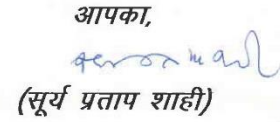 आपका,
(सूर्य प्रताप शाही)